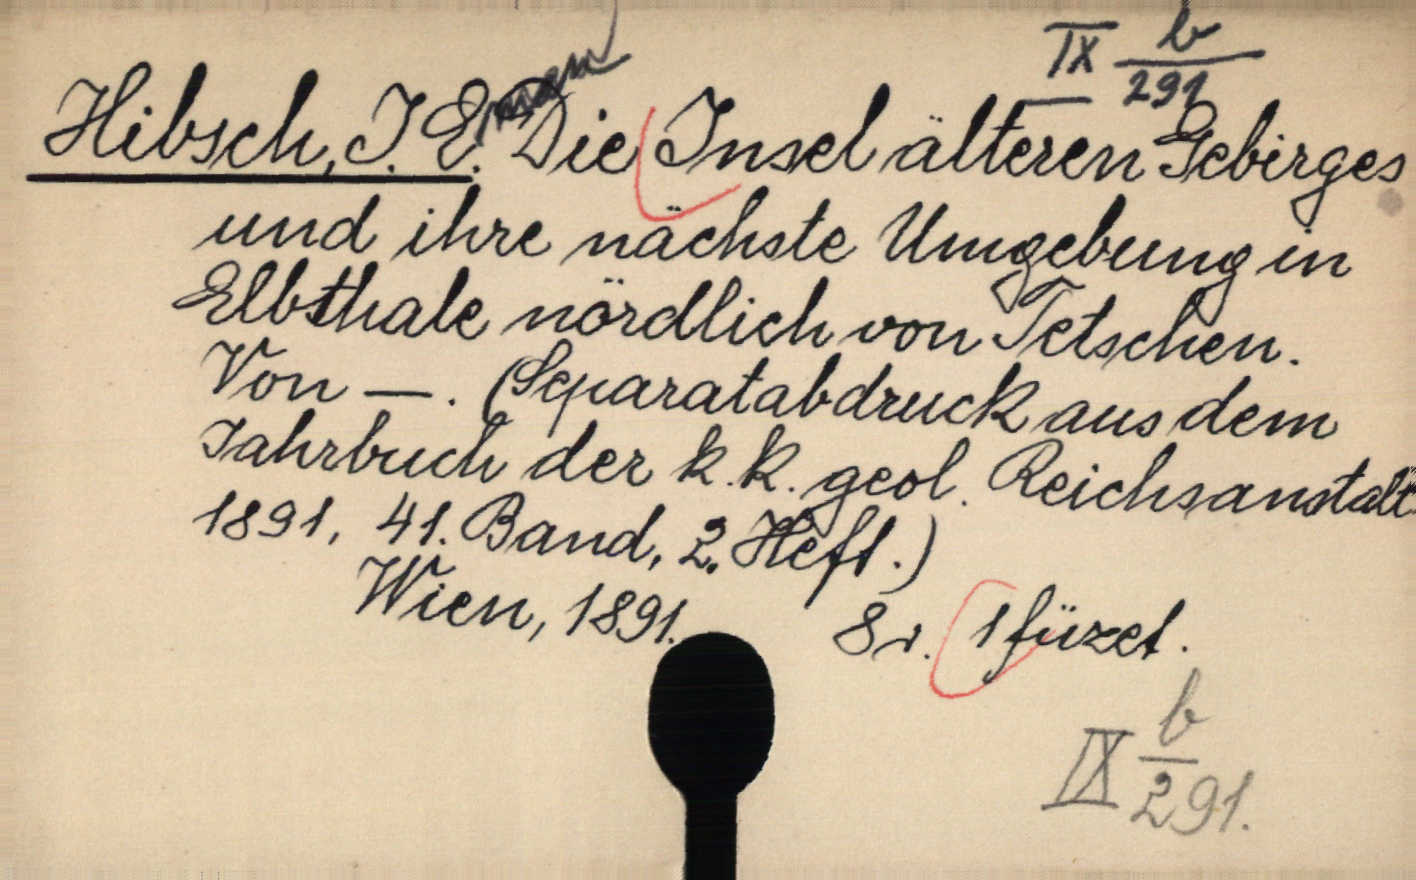 IX b
291
Hibsch, J. E. Die Insel älteren Gebirges
und ihre nächste Umgebung in
Elbsthale nördlich von Tetschen.
Von —. (Separatabdruck aus dem
Jahrbuch der k. k. geol. Reichsanstalt
1891, 41. Band, 2. Heft.)
Wien, 1891. 8r. 1 füzet.
IX b
291.